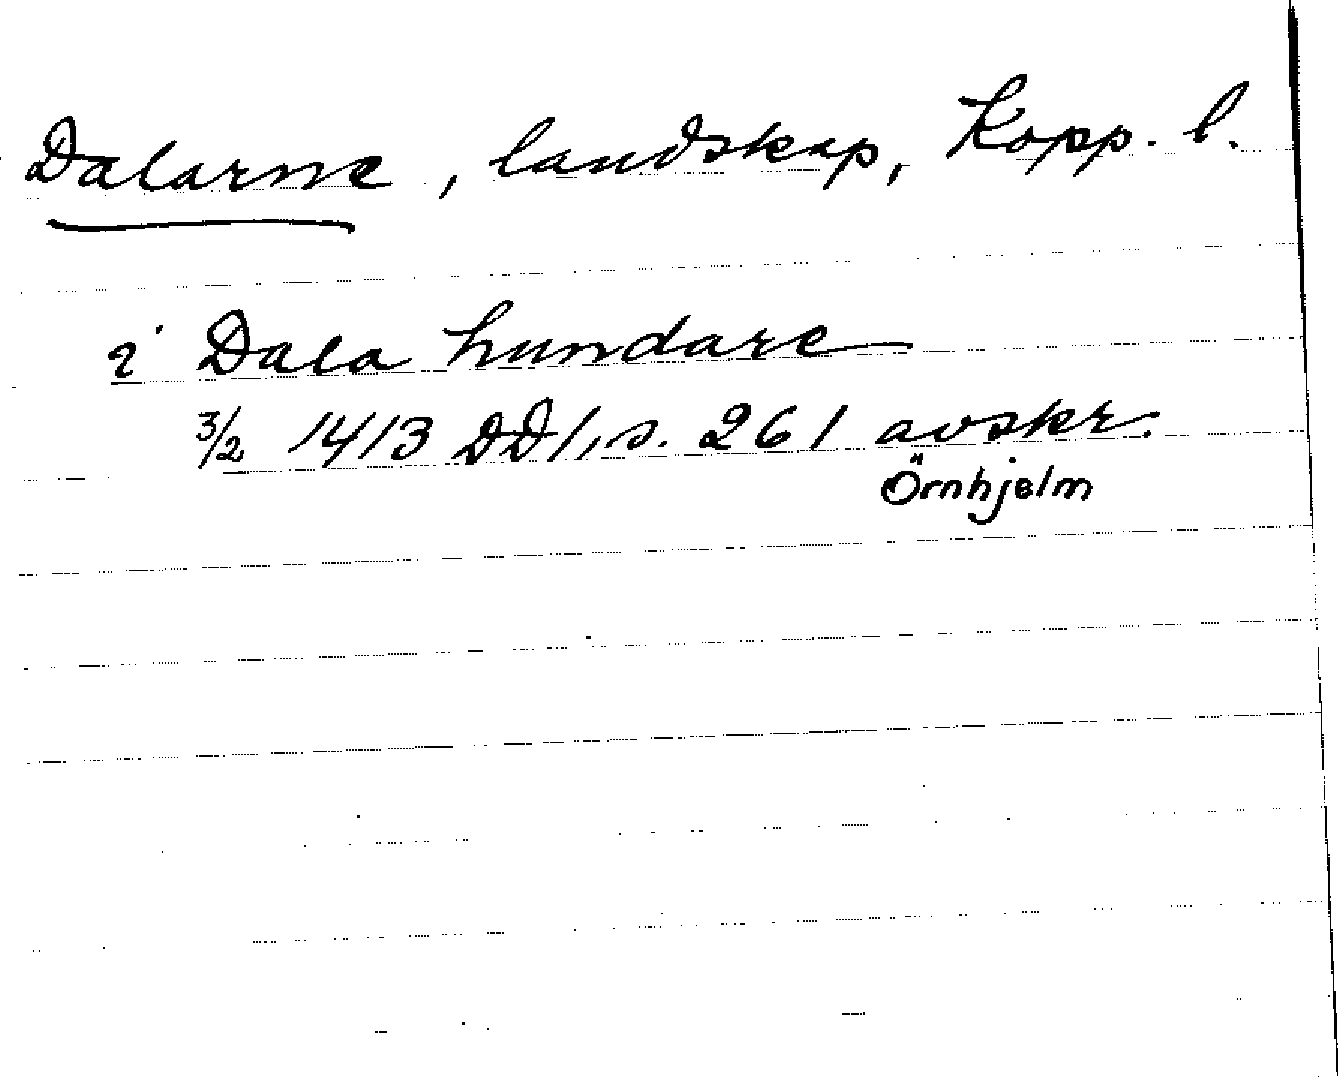 Dalarne, landskap, Kopp. l.
i Dala hundare
3/2 1413 DD 1, s. 261 avskr.
Örnhjelm